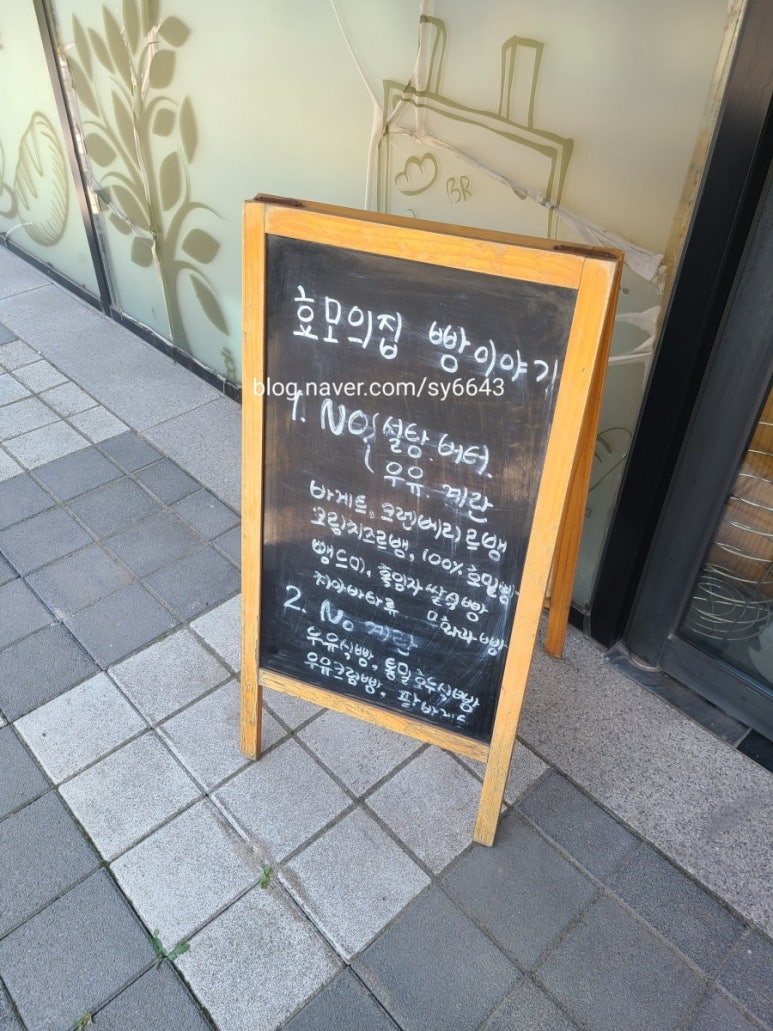 효모의집 빵이야기
blog.naver.com/sy6643
1. NO 설탕. 버터.
우유. 계란
바게트, 크랜베리 르뱅
크림치즈르뱅, 100% 호밀빵
뺑드미, 흑임자 쌀식빵
치아바타류
2. No 계란
우유식빵, 통밀호두식빵
우유크림빵, 팥바게트
BR